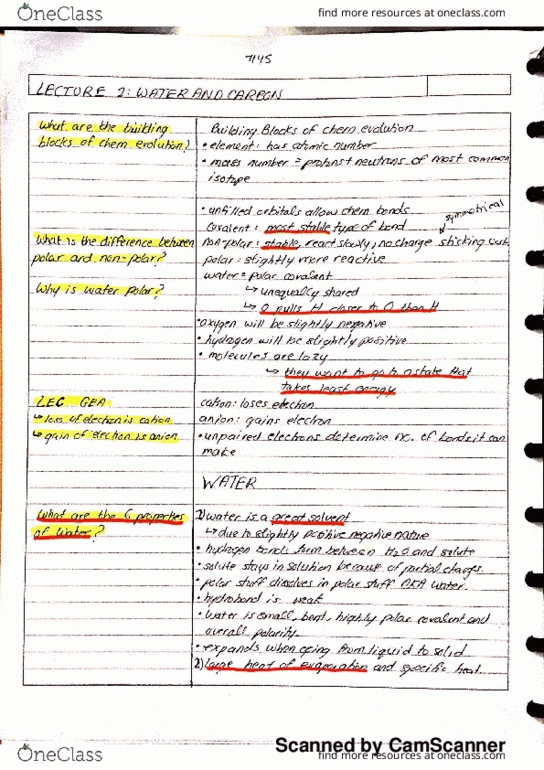 OneClass
find more resources at oneclass.com
LECTURE 2: WATER AND CARBON
What are the building
blocks of chem evolution?
Building Blocks of chem evolution
• element: has atomic number
• mass number = protons + neutrons of most common
isotope
• unfilled orbitals allow chem bonds
symmetrical
covalent: most stable type of bond
What is the difference between
polar and non-polar?
non-polar: stable, react slowly, no charge sticking out
polar: slightly more reactive
Why is water polar?
water = polar covalent
↳ unequally shared
↳ O pulls H closer to O than H
• oxygen will be slightly negative
• hydrogen will be slightly positive
• molecules are lazy
↳ they want to go to a state that
takes least
LEC GEA
↳ loss of electron is cation
↳ gain of electron is anion
cation: loses electron
anion: gains electron
• unpaired electrons determine no. of bonds it can
make
WATER
What are the 6 properties
of water?
1) water is a great solvent
↳ due to slightly positive negative nature
• hydrogen bonds form between H2O and solute
• solute stays in solution because of partial charges
• polar stuff dissolves in polar stuff AKA water.
• hydrobond is weak
• water is small, bent, highly polar covalent and
overall polarity.
• expands when going from liquid to solid
2) large heat of evaporation and specific heat.
Scanned by CamScanner
OneClass
find more resources at oneclass.com